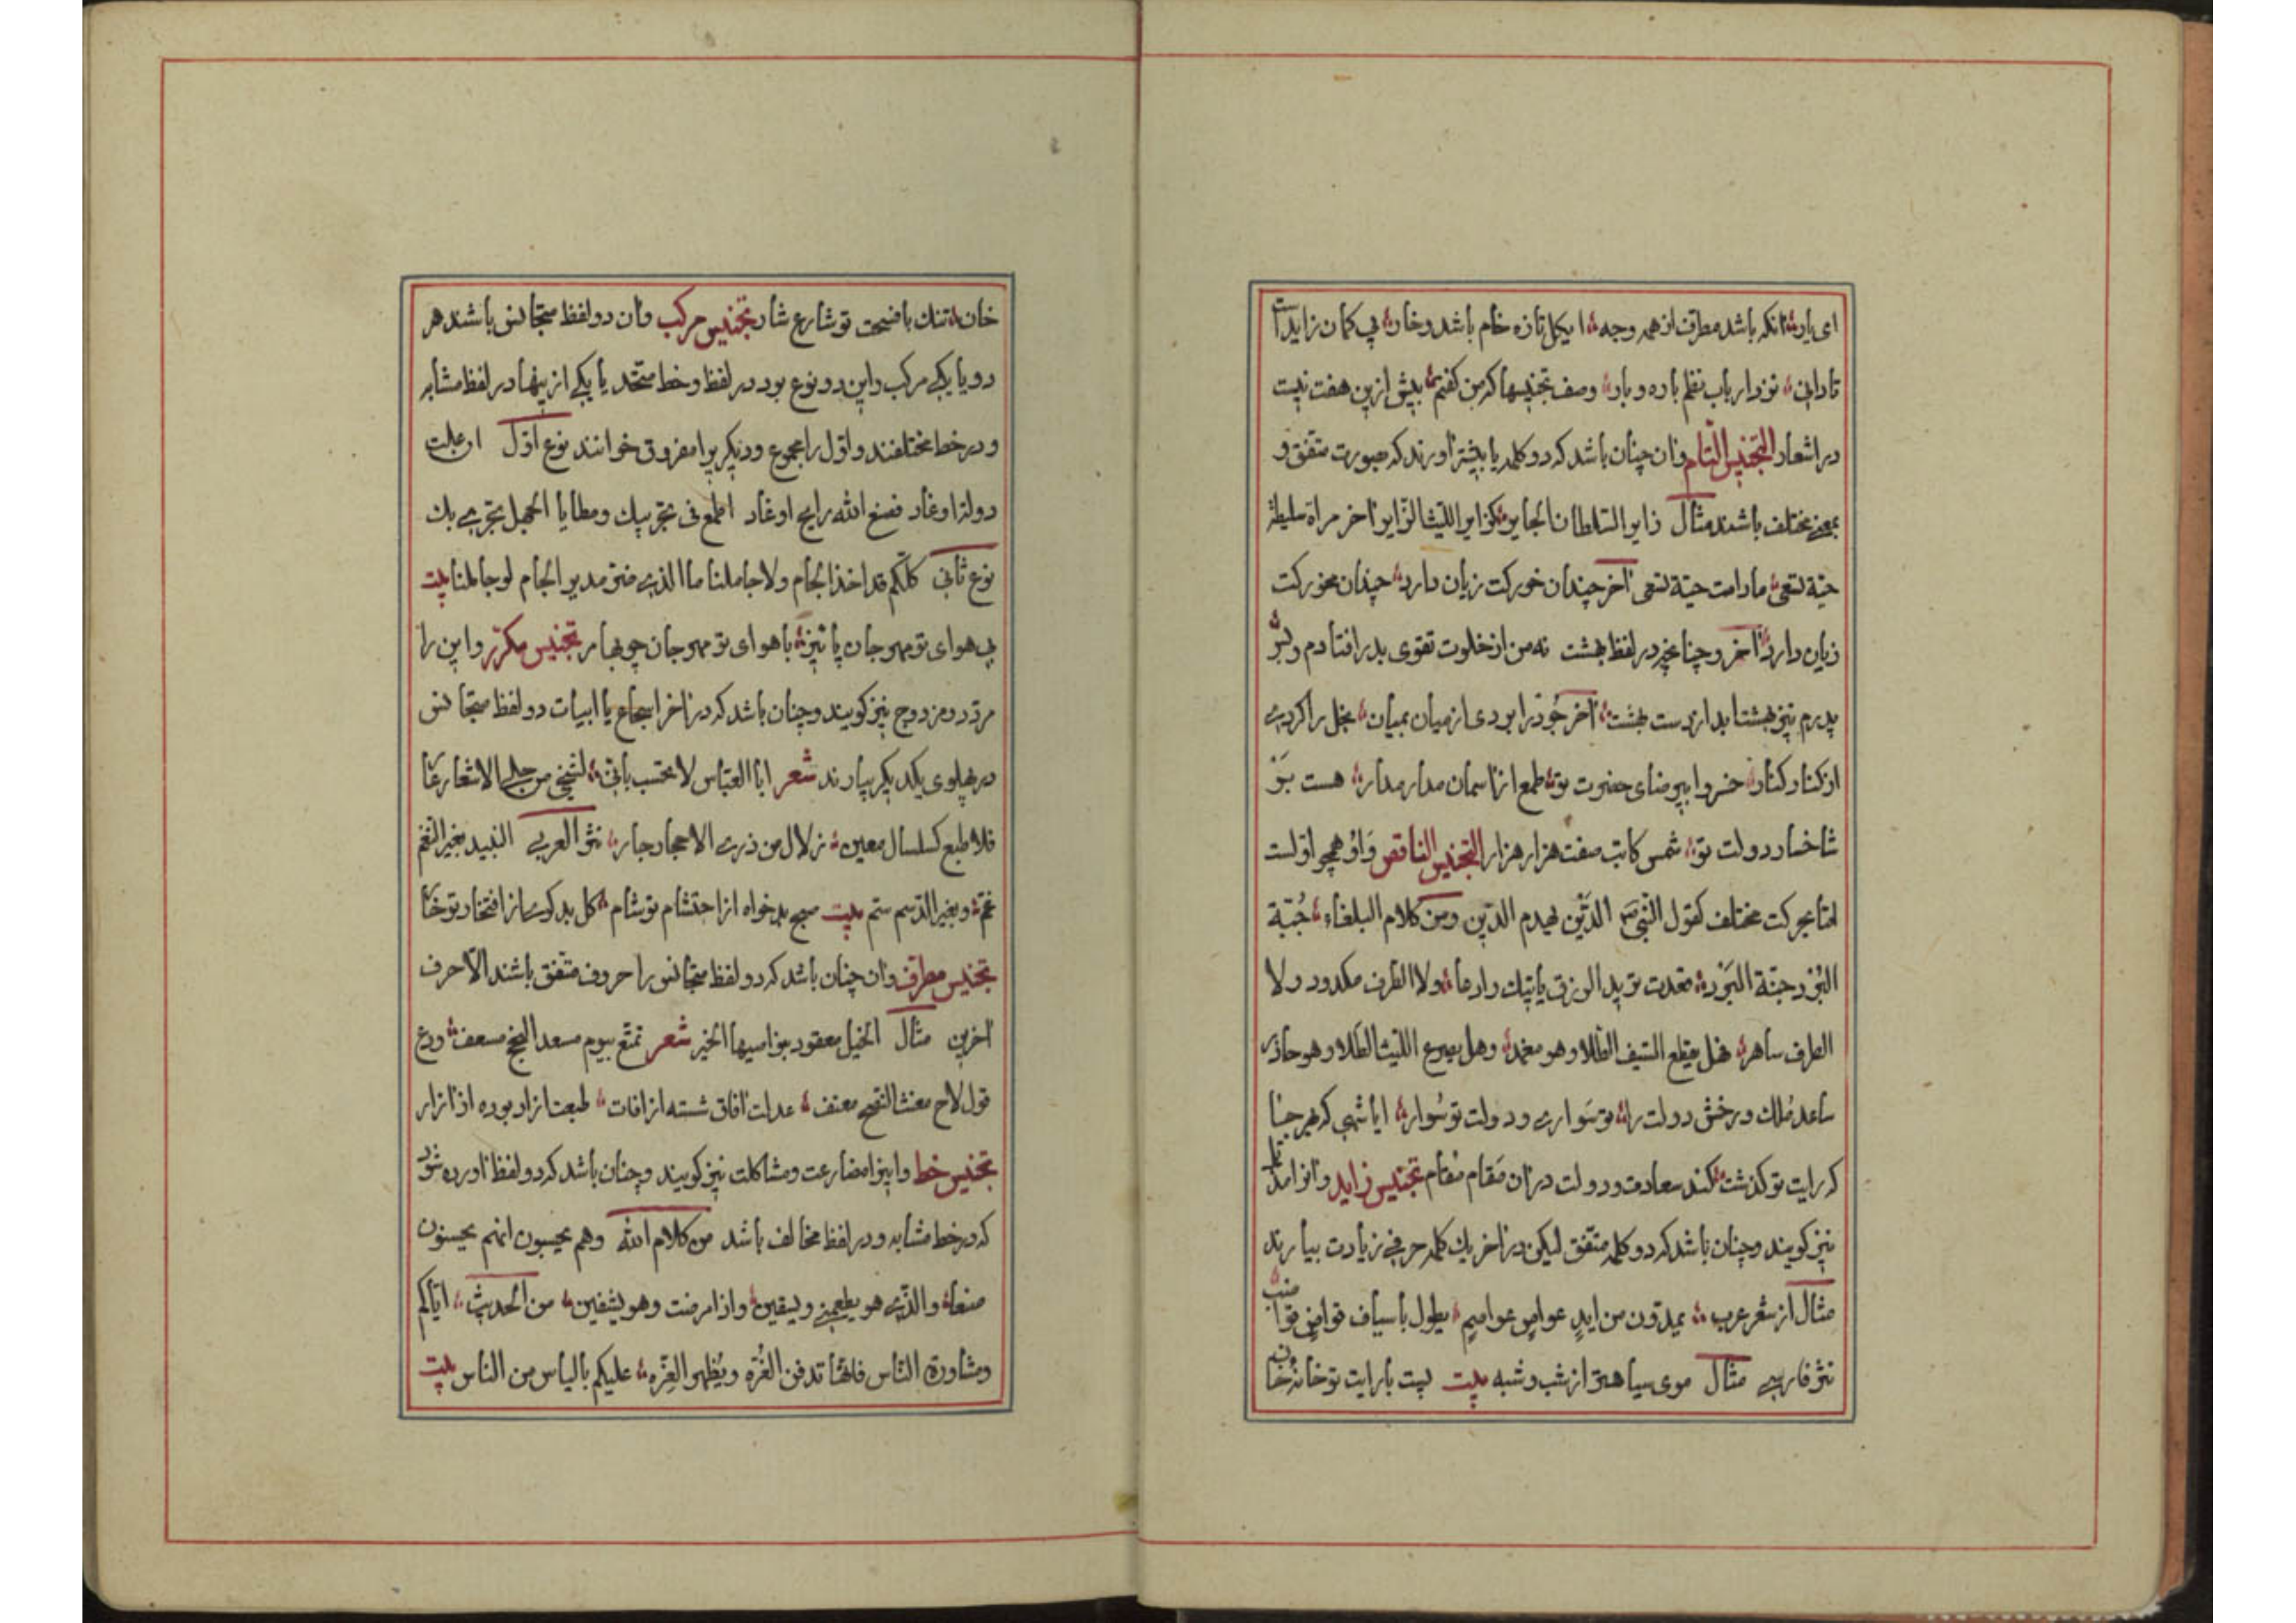 ای یار آنکه باشد مطرف از همه وجه ایکل تازه خام باشد و خار بی کمان زایدست
تادانی نزد ارباب نظم باده و باد وصف تجنیسها که من کفتم بیش ازین هفت نیست
در اشعار التجنیس التام وآن چنان باشد که دو کلمه یا بیشتر اورند که بصورت متفق و
بمعنی مختلف باشند مثال زایر السلطان الجایر کزایر اللیث الزایر آخر مراة سلیطة
حیّة تسعی مادامت حیّة تسعی آخر چندان خورکت زیان دارد چندان مخورکت
زیان دارد آخر وچنانچه در لفظ بهشت نه من از خلوت تقوی بدر افتادم وبس
پدرم نیز بهشت ابد از دست بهشت آخر جود را بردی از میان بمیان بخل را کردی
از کنار کنار خسروا بیرضای حضرت تو طمع از آسمان مدار مدار هست بر
شاخسار دولت تو شمس کاتب صفت هزار هزار التجنیس الناقص واو همچو اولست
امّا بحرکت مختلف کقول النبی الدَّین یهدم الدّین ومن کلام البلغاء جُبّة
البُرد جنّة البَرد ولا
الطرف ساهر فهل یقطع السیف الطلا وهو مغمد وهل یصرع اللیث الطلا وهو حاذر
ساعد مُلک و رخش دولت را تو سَواری ودولت تو سُوار ایا شهی که بهر جنا
که رایت تو کذشت کند سعادت ودولت دران مَقام مُقام تجنیس زاید وانرا مذیّل
نیز کویند وچنان باشد که دو کلمه متفق لیکن در آخر یک کلمه حرفی زیادت بیارند
مثال از شعر عرب یمدّون من ایدٍ عواصٍ عواصم یطول باسیاف قواضٍ قواضب
نثر فارسی مثال موی سیاهتر از شب و شبه بیت بارایت تو خانه خان
خان تنک باضیحت تو شارع شار تجنیس مرکب وآن دو لفظ متجانس باشند هر
دو یا یکی مرکب واین دو نوع بود در لفظ وخط متحّد یا یکی از ینها در لفظ مشابه
ودر خط مختلفند واول را مجموع ودیکریرا مفروق خوانند نوع اول ان علت
دولة اوغاد فصنع الله رایح اوغاد اطمع فی تجریبک ومطایا الجهل تجری بک
نوع ثانی کلّکم قد اخذ الجام ولا جام لنا ما الذی ضرّ مدیر الجام لو جاملنا بیت
بی هوای تو مهرجان پاییز با هوای تو مهرجان چو بهار تجنیس مکرّر واین را
مردّد ومزدوج نیز کویند وچنان باشد که در آخر اسجاع یا ابیات دو لفظ متجانس
در پهلوی یکدیکر بیارند شعر ابا العبّاس لا تحسب بانّی لشیئی من حلی الاشعار عار
فلا طبع کسلسال معین زلال من ذری الاحجار جار نثر العربی النبید بغیر النغم
غم وبغیر الدسم سم بیت صبح بدخواه از احتشام تو شام کل بدکوی از افتخار تو خار
تجنیس مطرف وآن چنان باشد که دو لفظ متجانس را حروف متفق باشند الّا حرف
آخرین مثال الخیل معقود بنواصیها الخیر شعر تمتّع بیوم مسعد النجح مسعف ودع
قول لاح معنت النصح معنف عدلت آفاق شسته از آفات طبعت آزاد بوده از آزار
تجنیس خط واینرا مضارعت ومشاکلت نیز کویند وچنان باشد که دو لفظ آورده شود
که در خط مشابه ودر لفظ مخالف باشد من کلام الله وهم یحسبون انهم یحسنون
صنعاً والذی هو یطعمنی ویسقین واذا مرضت وهو یشفین من الحدیث ایّاکم
ومشاورة الناس فانها تدفن الغُرّه ویُظهر العِرّه علیکم بالیاس من الناس بیت